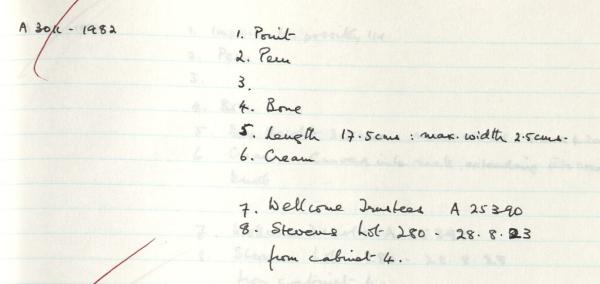 A 30K - 1982
1. Point
2. Peru
3.
4. Bone
5. Length 17.5cms : max. width 2.5cms.
6. Cream
7. Wellcome Trustees A 25390
8. Stevens Lot 280 - 28.8.23
from cabinet 4.